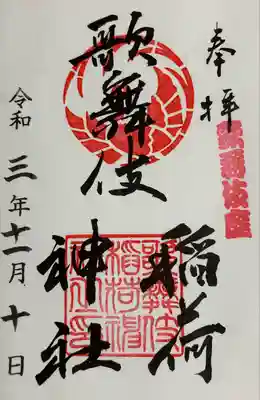 奉拝
歌舞伎座
歌舞伎
稲荷
神社
令和三年十一月十日